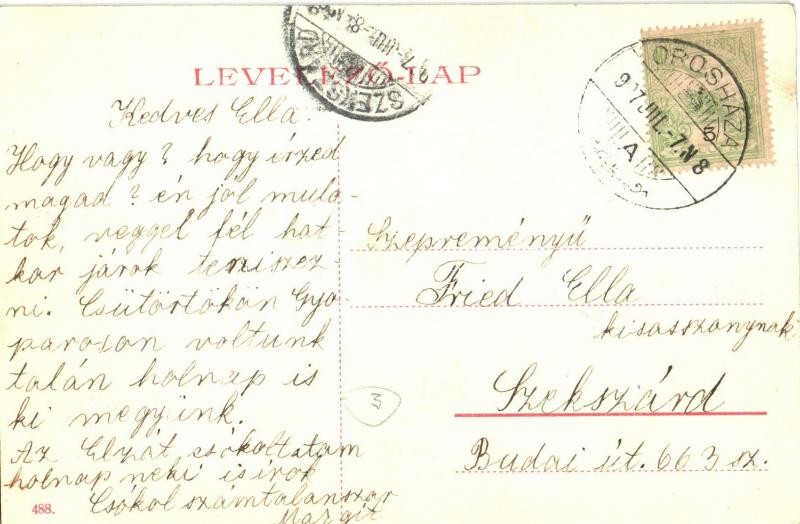 LEVELEZŐ-LAP
SZEKSZÁRD
OROSHÁZA
917 JUL.-7.N8
A
5
Kedves Ella!
Hogy vagy? hogy érzed
magad? én jól mula-
tok, veggel fél hat-
kor járok teniszez-
ni. Csütörtökön Gyo-
paroson voltunk
talán holnap is
ki megyünk.
Az Elzát csókoltatom
holnap neki is irok
Csókol számtalanszor
Margit
Szepreményű
Fried Ella
kisasszonynak
Szekszárd
Budai út. 663 sz.
3
488.